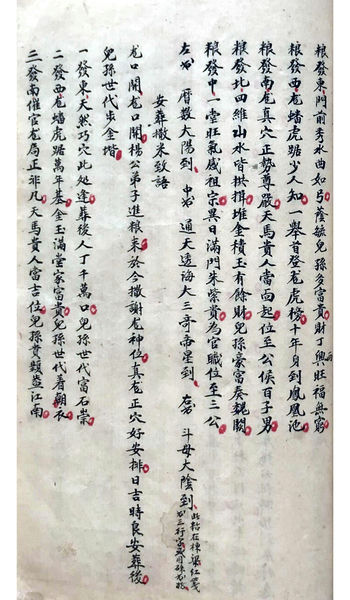 粮發東門前秀水曲如弓蔭娩兒孫多富貴財丁興旺福無窮
粮發西龙蟠虎踞少人知一舉首登龙虎榜十年身到鳳凰池
粮發南龙真穴正勢尊嚴天馬貴人當面起位至公侯百子男
粮發北四維山水皆拱揖堆金積玉有餘財兒孫豪富奏魏闕
粮發中一堂旺氣感祖宗異日滿門朱紫貴為官職位至三公
左书 曆数太陽到 中书 通天透海大三奇帝星到 右书 斗母太陰到
此粘在棟梁紅箋
安葬撒米敨語
龙口開龙口開楊公弟子進粮来於今撒謝龙神位真龙正穴好安排日吉時良安葬後
兒孫世代步金階
一發東天然巧穴此处逢葬後人丁千萬口兒孫世代富石崇
二發西龙蟠虎踞萬年基金玉滿堂家富貴兒孫世代着朝衣
三發南催官龙局正非凡天馬貴人當吉位兒孫貴顯蓋江南